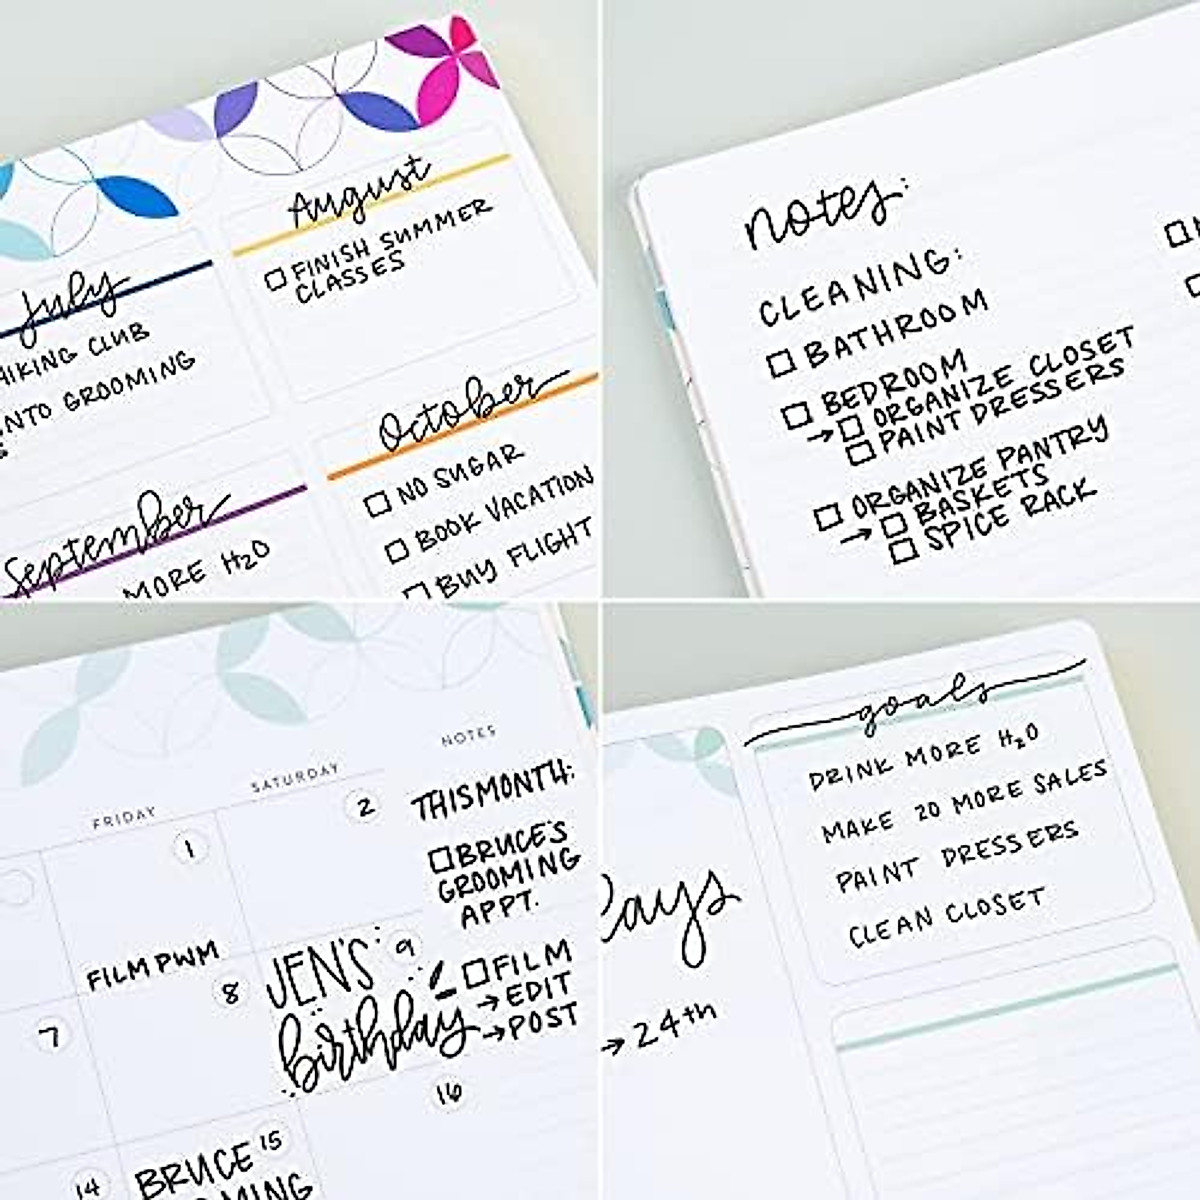 August
☐ FINISH SUMMER
CLASSES
July
HIKING CLUB
GROOMING
October
☐ NO SUGAR
☐ BOOK VACATION
☐ BUY FLIGHT
September
MORE H₂O
notes:
CLEANING:
☐ BATHROOM
☐ BEDROOM
→ ☐ ORGANIZE CLOSET
☐ PAINT DRESSERS
☐ ORGANIZE PANTRY
→ ☐ BASKETS
☐ SPICE RACK
FRIDAY
SATURDAY
NOTES
1
2
THIS MONTH:
☐ BRUCE'S
GROOMING
APPT.
☐ FILM
→ EDIT
→ POST
FILM PWM
7
8
JEN'S
birthday
9
14
BRUCE
15
16
goals
DRINK MORE H₂O
MAKE 20 MORE SALES
PAINT DRESSERS
CLEAN CLOSET
→ 24th